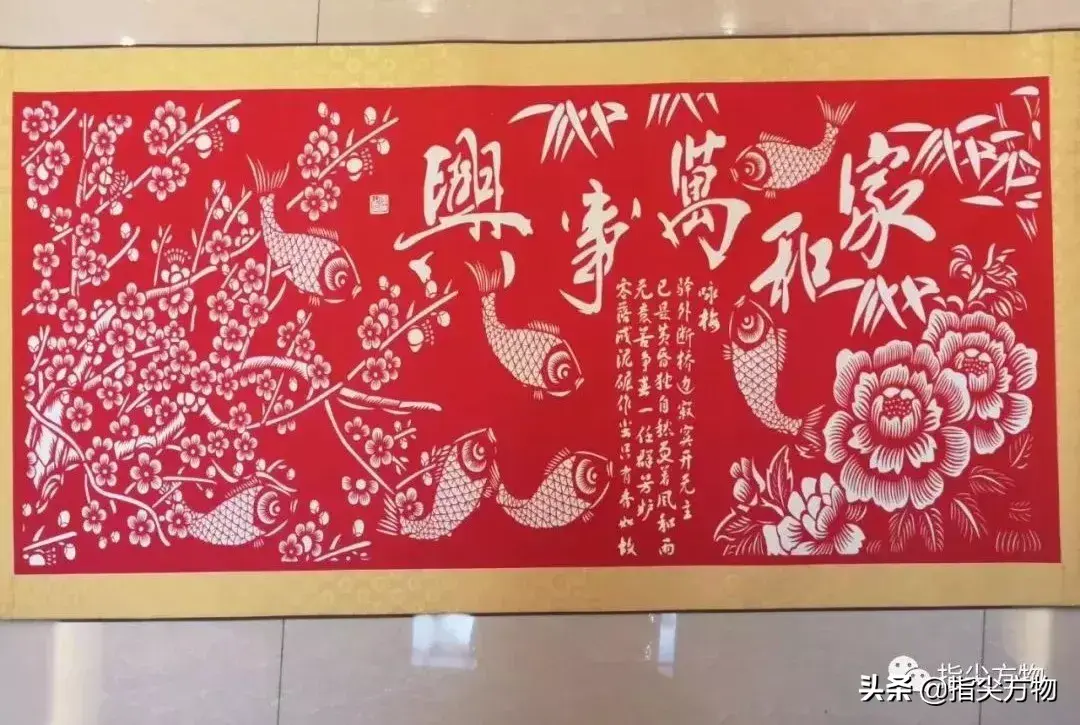 家和萬事興
咏梅
驿外断桥边寂寞开无主
已是黄昏独自愁更着风和雨
无意苦争春一任群芳妒
零落成泥碾作尘只有香如故
指尖方物
头条 @指尖方物